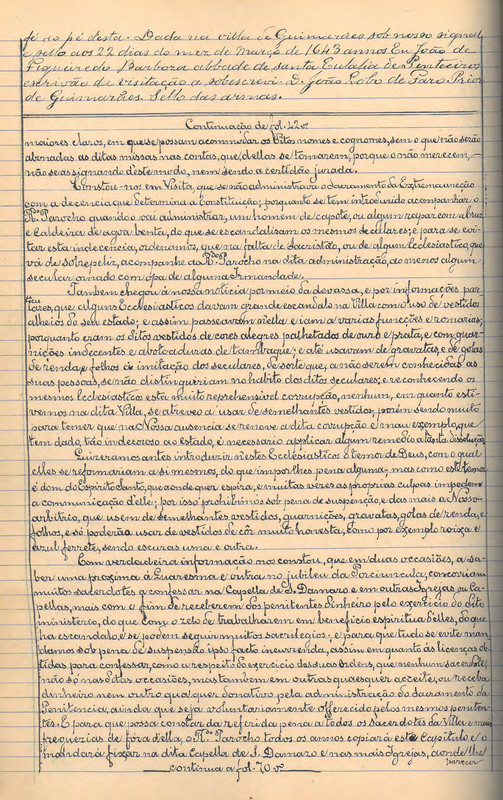 fé ao pé desta. Dada na villa de Guimarães sob nosso signal
e sello aos 22 dias do mez de Março de 1643 annos Eu João de
Figueiredo Barboza abbade de santa Eulalia de Penteeiros
escrivão de visitação a sobescrevi. D. João Lobo de Faro Prior
de Guimarães. Sello das armas.
Continuação de fol. 42vº
maiores claros, em que se possam acommodar os ditos nomes e cognomes, sem o que não serão
abonadas as ditas missas nas contas, que d'ellas se tomarem, porque o não merecem,
não se assignando d'este modo, nem sendo a certidão jurada.
Constou-nos em Visita, que se não administrava o Sacramento da Extrema uncção
com a decencia que determina a Constituição; porquanto se tem introduzido acompanhar o
Rdo Parocho quando o vai administrar, um homem de capote, ou algum rapaz com a cruz
e caldeira de agoa benta, do que se escandalisam os mesmos seculares; e para se evi-
tar esta indecencia, ordenamos, que na falta de Sacristão, ou de algum Ecclesiastico, que
vá de sobrepeliz, acompanhe ao Rdo Parocho na dita administração, ao menos algum
secular ornado com ópa de alguma Irmandade.
Tambem chegou á nossa noticia por meio da devassa, e por informações par-
ticulares, que alguns Ecclesiasticos davam grande escandalo na Villa com o uso de vestidos
alheios do seu estado; e assim passeavam n'ella e iam a varias funcções e romarias;
porquanto eram os ditos vestidos de cores alegres palhetados de ouro e prata, e com guar-
nições indecentes e abotoaduras de tambaque; e até usavam de gravatas, e de golas
de renda, e folhos á imitação dos seculares, de sorte que, a não serem conhecidas as
suas pessoas, se não distinguiriam no habito dos ditos seculares; e reconhecendo os
mesmos Ecclesiasticos esta muito reprehensivel corrupção, nenhum, em quanto esti-
vemos na dita Villa, se atreveo a usar de semelhantes vestidos; porém sendo muito
para temer que na Nossa ausencia se renove a dita corrupção e mau exemplo, que
tem dado, tão indecoroso ao estado, é necessario applicar algum remedio a tanta dissolução.
Quizeramos antes introduzir n'estes Ecclesiasticos o temor de Deus, com o qual
elles se reformariam a si mesmos, do que impor-lhes pena alguma, mas como este temor
é dom do Espirito Santo, que aonde quer espira, e muitas vezes as proprias culpas impedem
a communicação d'elle; por isso prohibimos sob pena de suspensão, e das mais a Nosso
arbitrio, que usem de semelhantes vestidos, guarnições, gravatas, golas de renda, e
folhos, e só poderão usar de vestidos de côr muito honesta, como por exemplo roixa e
azul ferrete, sendo escuras uma e outra.
Com verdadeira informação nos constou, que em duas occasiões, a sa-
ber uma proxima á Quaresma e outra no jubileu da Porciuncula, concorriam
muitos sacerdotes a confessar na Capella de S. Damazo e em outras Igrejas ou Ca-
pellas, mais com o fim de receberem dos penitentes dinheiro pelo exercicio do dito
ministerio, do que com o zelo de trabalharem em beneficio espiritual d'elles, do que
ha escandalo, e se podem seguir muitos sacrilegios; e para que tudo se evite man-
damos sob pena de suspensão ipso facto incurrenda, assim em quanto ás licenças ob-
tidas para confessar, como a respeito do exercicio das suas Ordens, que nenhum sacerdote,
não só nas ditas occasiões, mas tambem em outras quaesquer acceite, ou receba
dinheiro nem outro qualquer donativo pela administração do Sacramento da
Penitencia, ainda que seja voluntariamente offerecido pelos mesmos peniten-
tes. E para que possa constar da referida pena a todos os Sacerdotes da Villa e mais
freguezias de fóra d'ella, o Rdo Parocho todos os annos copiará este Capitulo e o
mandará fixar na dita Capella de S. Damazo e nas mais Igrejas, aonde lhe
parecer
continua a fol. 70vº